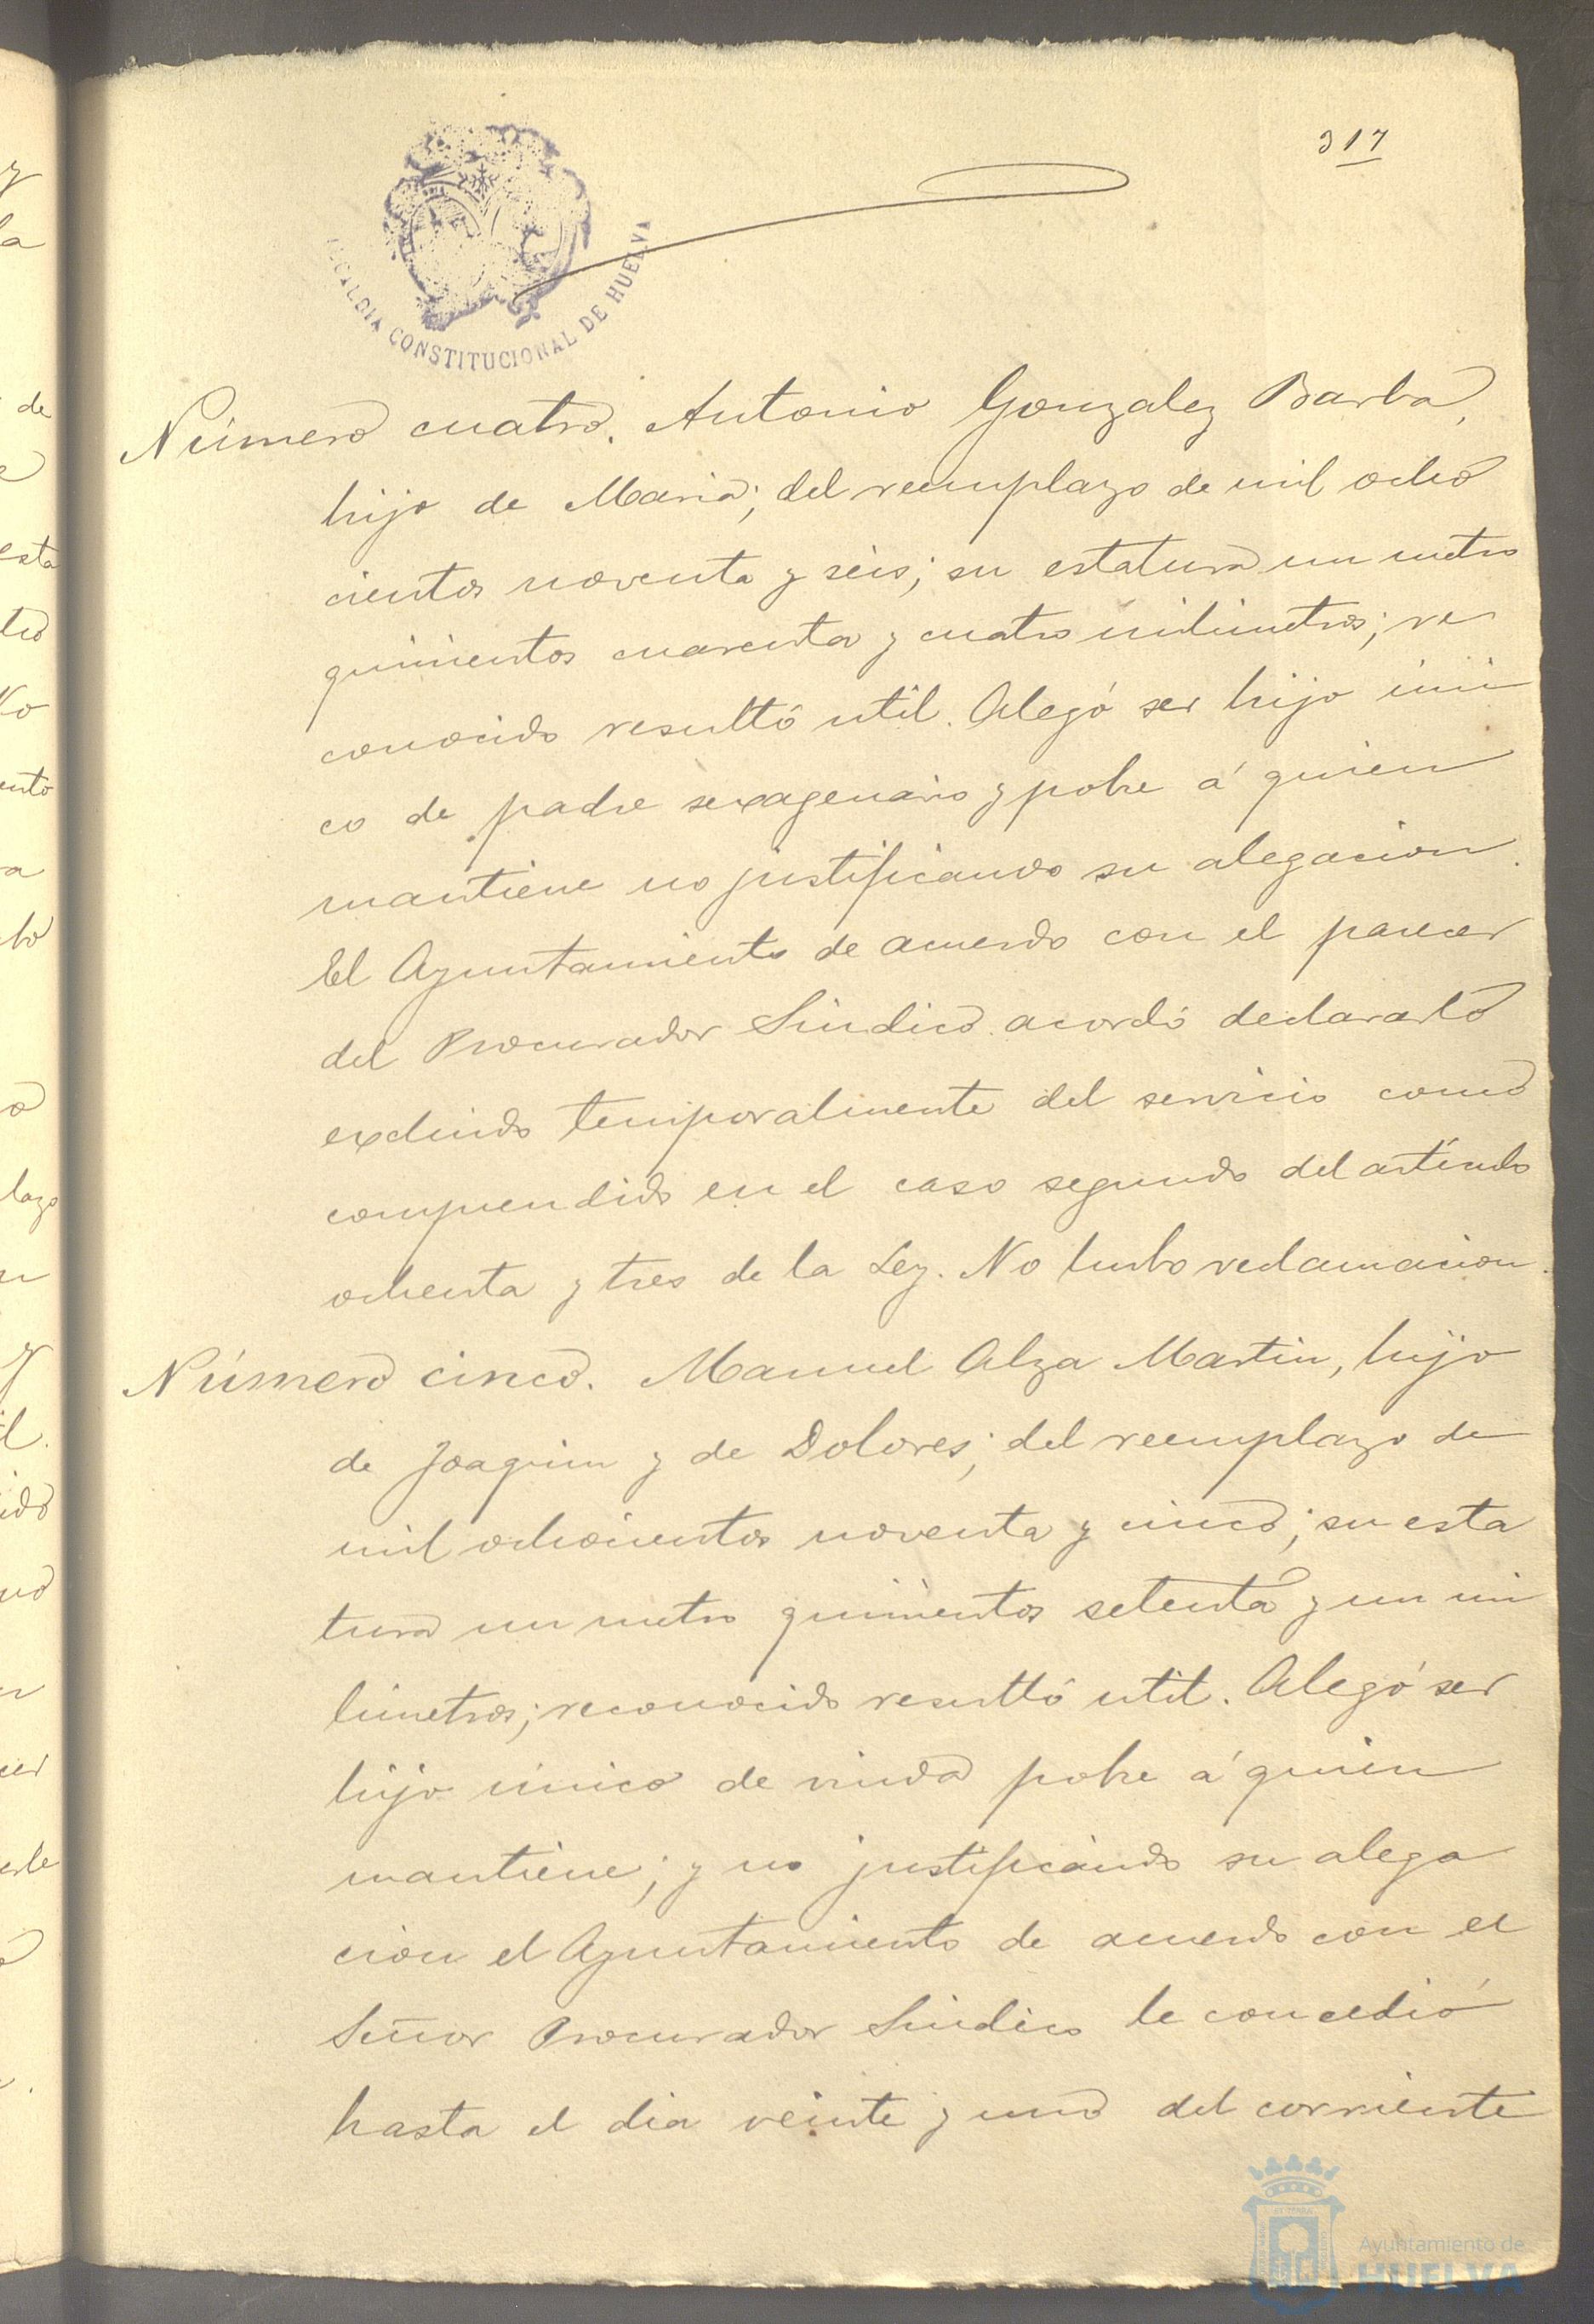 317
ALCALDIA CONSTITUCIONAL DE HUELVA
Número cuatro. Antonio Gonzalez Barba,
hijo de Maria; del reemplazo de mil ocho
cientos noventa y seis; su estatura un metro
quinientos cuarenta y cuatro milimetros; re
conocido resultó util. Alegó ser hijo úni
co de padre sexagenario y pobre á quien
mantiene no justificando su alegacion.
El Ayuntamiento de acuerdo con el parecer
del Procurador Sindico acordó declararlo
excluido temporalmente del servicio como
comprendido en el caso segundo del artículo
ochenta y tres de la Ley. No hubo reclamacion.
Número cinco. Manuel Alza Martin, hijo
de Joaquin y de Dolores; del reemplazo de
mil ochocientos noventa y cinco; su esta
tura un metro quinientos setenta y un mi
limetros; reconocido resultó util. Alegó ser
hijo único de viuda pobre á quien
mantiene; y no justificando su alega
cion el Ayuntamiento de acuerdo con el
Señor Procurador Sindico le concedió
hasta el dia veinte y uno del corriente
Ayuntamiento de
HUELVA